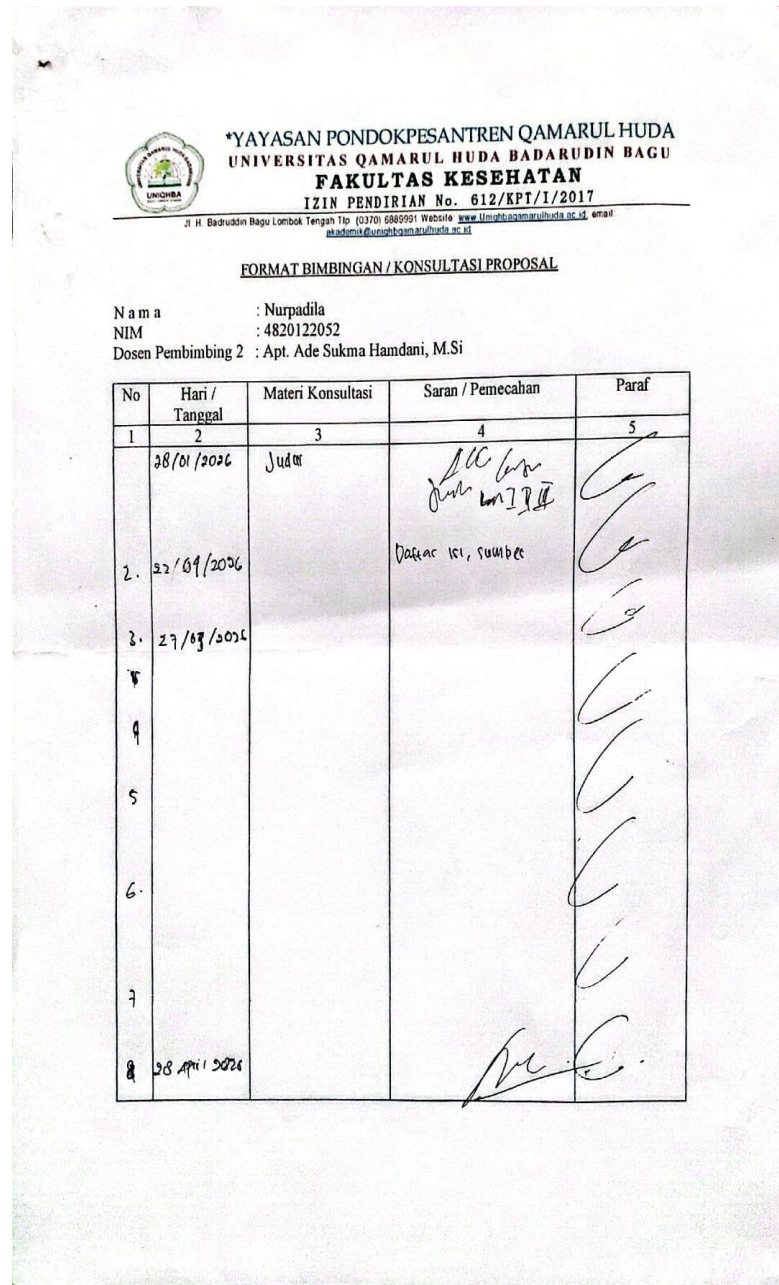 *YAYASAN PONDOKPESANTREN QAMARUL HUDA
UNIVERSITAS QAMARUL HUDA BADARUDIN BAGU
FAKULTAS KESEHATAN
IZIN PENDIRIAN No. 612/KPT/I/2017
Jl. H. Badruddin Bagu Lombok Tengah Tlp (0370) 6889991 Website: www.Uniqhbaqamarulhuda.ac.id, email:
akademik@uniqhbqamarulhuda.ac.id
UNIQHBA
FORMAT BIMBINGAN / KONSULTASI PROPOSAL
N a m a : Nurpadila
NIM : 4820122052
Dosen Pembimbing 2 : Apt. Ade Sukma Hamdani, M.Si
No Hari / Tanggal Materi Konsultasi Saran / Pemecahan Paraf
1 2 3 4 5
28/01/2026 Judul ACC
2. 22/04/2026 Daftar isi, sumber
3. 27/03/2026
4
5
6.
7
8 28 April 2026 Acc